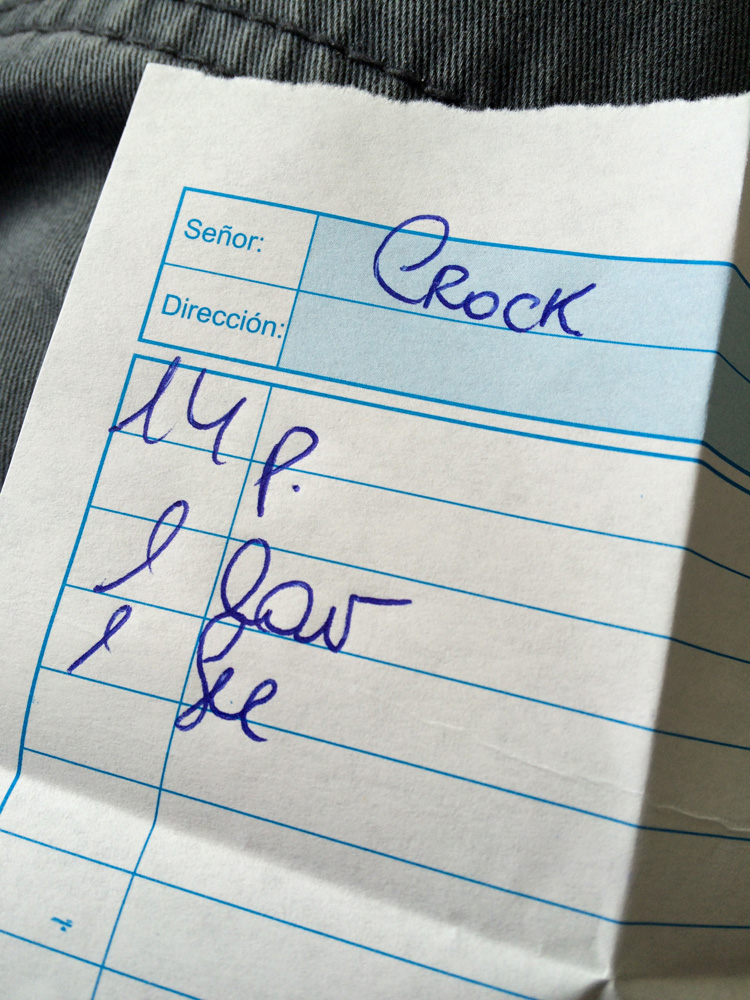 Señor: CROCK
Dirección:
14 P.
1 Gav
1 See